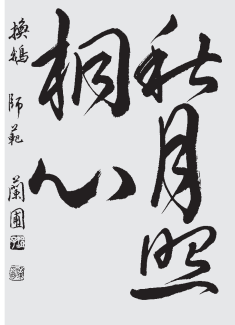 秋月照
桐心
換鵝 師範 蘭園